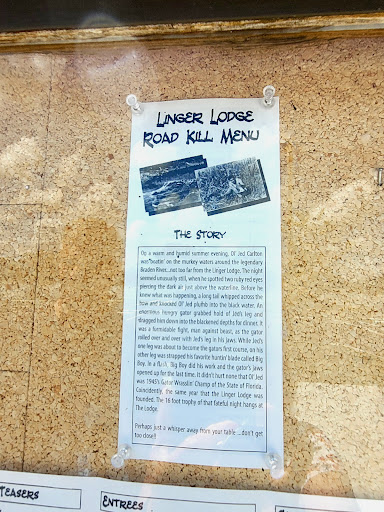 Linger Lodge
Road Kill Menu
The Story
On a warm and humid summer evening, Ol' Jed Carlton
was "boatin" on the murkey waters around the legendary
Braden River...not too far from the Linger Lodge. The night
seemed unusually still, when he spotted two ruby red eyes
piercing the dark air just above the waterline. Before he
knew what was happening, a long tail whipped across the
bow and knocked Ol' Jed plumb into the black water. An
enormous hungry gator grabbed hold of Jed's leg and
dragged him down into the blackened depths for dinner. It
was a formidable fight, man against beast, as the gator
rolled over and over with Jed's leg in his jaws. While Jed's
one leg was about to become the gators first course, on his
other leg was strapped his favorite huntin' blade called Big
Boy. In a flash, Big Boy did his work and the gator's jaws
opened up for the last time. It didn't hurt none that Ol' Jed
was 1945's Gator Wrasslin' Champ of the State of Florida.
Coincidently, the same year that the Linger Lodge was
founded. The 16 foot trophy of that fateful night hangs at
The Lodge.
Perhaps just a whisper away from your table ...don't get
too close!!
Teasers
Entrees